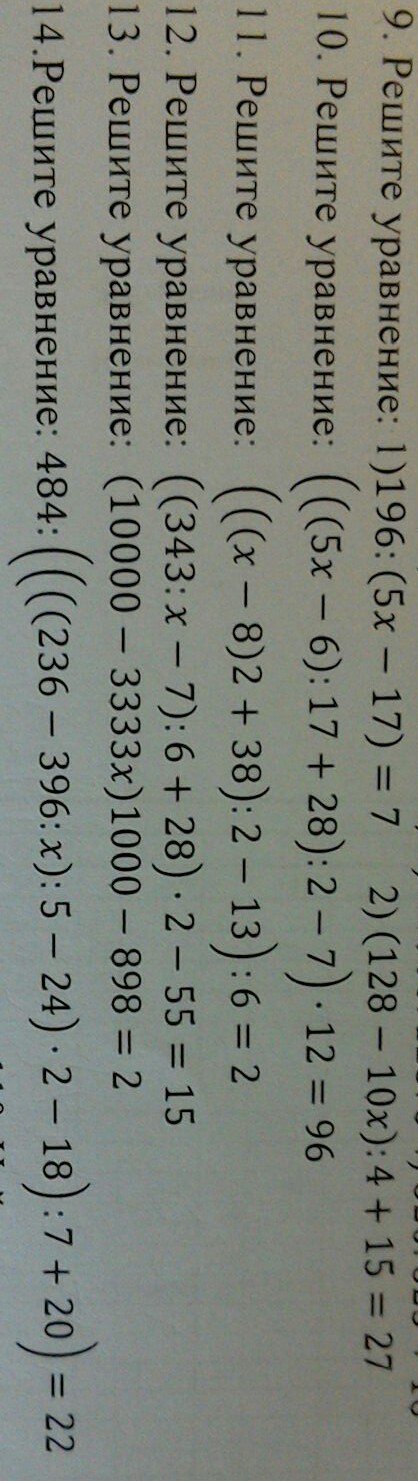 9. Решите уравнение: 1)196:(5x − 17) = 7 2)(128 − 10x):4 + 15 = 27
10. Решите уравнение: (((5x − 6):17 + 28):2 − 7) · 12 = 96
11. Решите уравнение: (((x − 8)2 + 38):2 − 13):6 = 2
12. Решите уравнение: ((343:x − 7):6 + 28) · 2 − 55 = 15
13. Решите уравнение: (10000 − 3333x)1000 − 898 = 2
14.Решите уравнение: 484:((((236 − 396:x):5 − 24) · 2 − 18):7 + 20) = 22